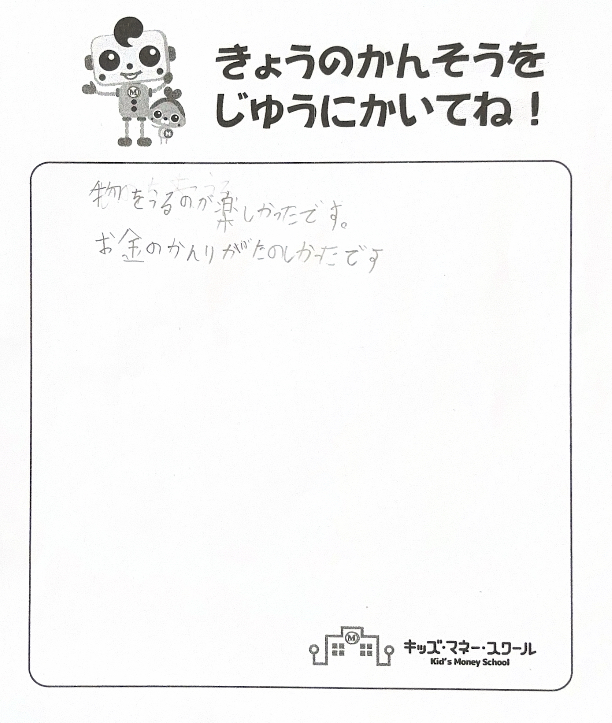 きょうのかんそうを
じゆうにかいてね！
物をうるのが楽しかったです。
お金のかんりがたのしかったです
キッズ・マネー・スクール
Kid's Money School